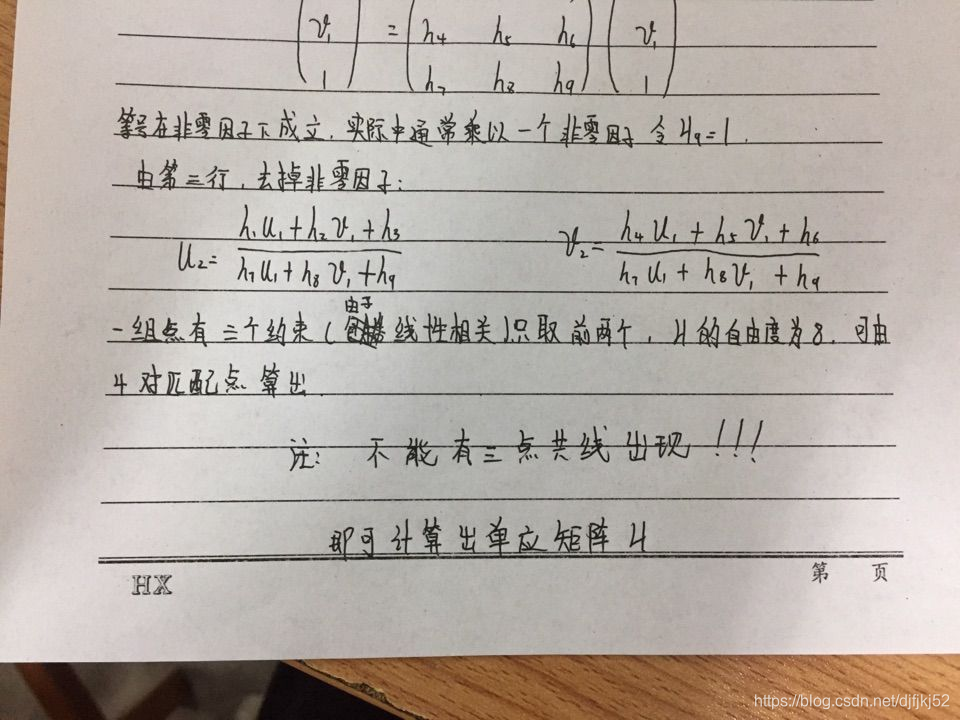 v₁ = h₄ h₅ h₆ v₁
1 h₇ h₈ h₉ 1
等号在非零因子下成立，实际中通常乘以一个非零因子 令H₉=1.
由第三行，去掉非零因子:
u₂= (h₁u₁+h₂v₁+h₃)/(h₇u₁+h₈v₁+h₉) v₂= (h₄u₁+h₅v₁+h₆)/(h₇u₁+h₈v₁+h₉)
由于
一组点有三个约束(线性相关)只取前两个, H的自由度为8. 可由
4对匹配点算出.
注: 不能有三点共线出现!!!
即可计算出单应矩阵H
HX 第 页
https://blog.csdn.net/djfjkj52